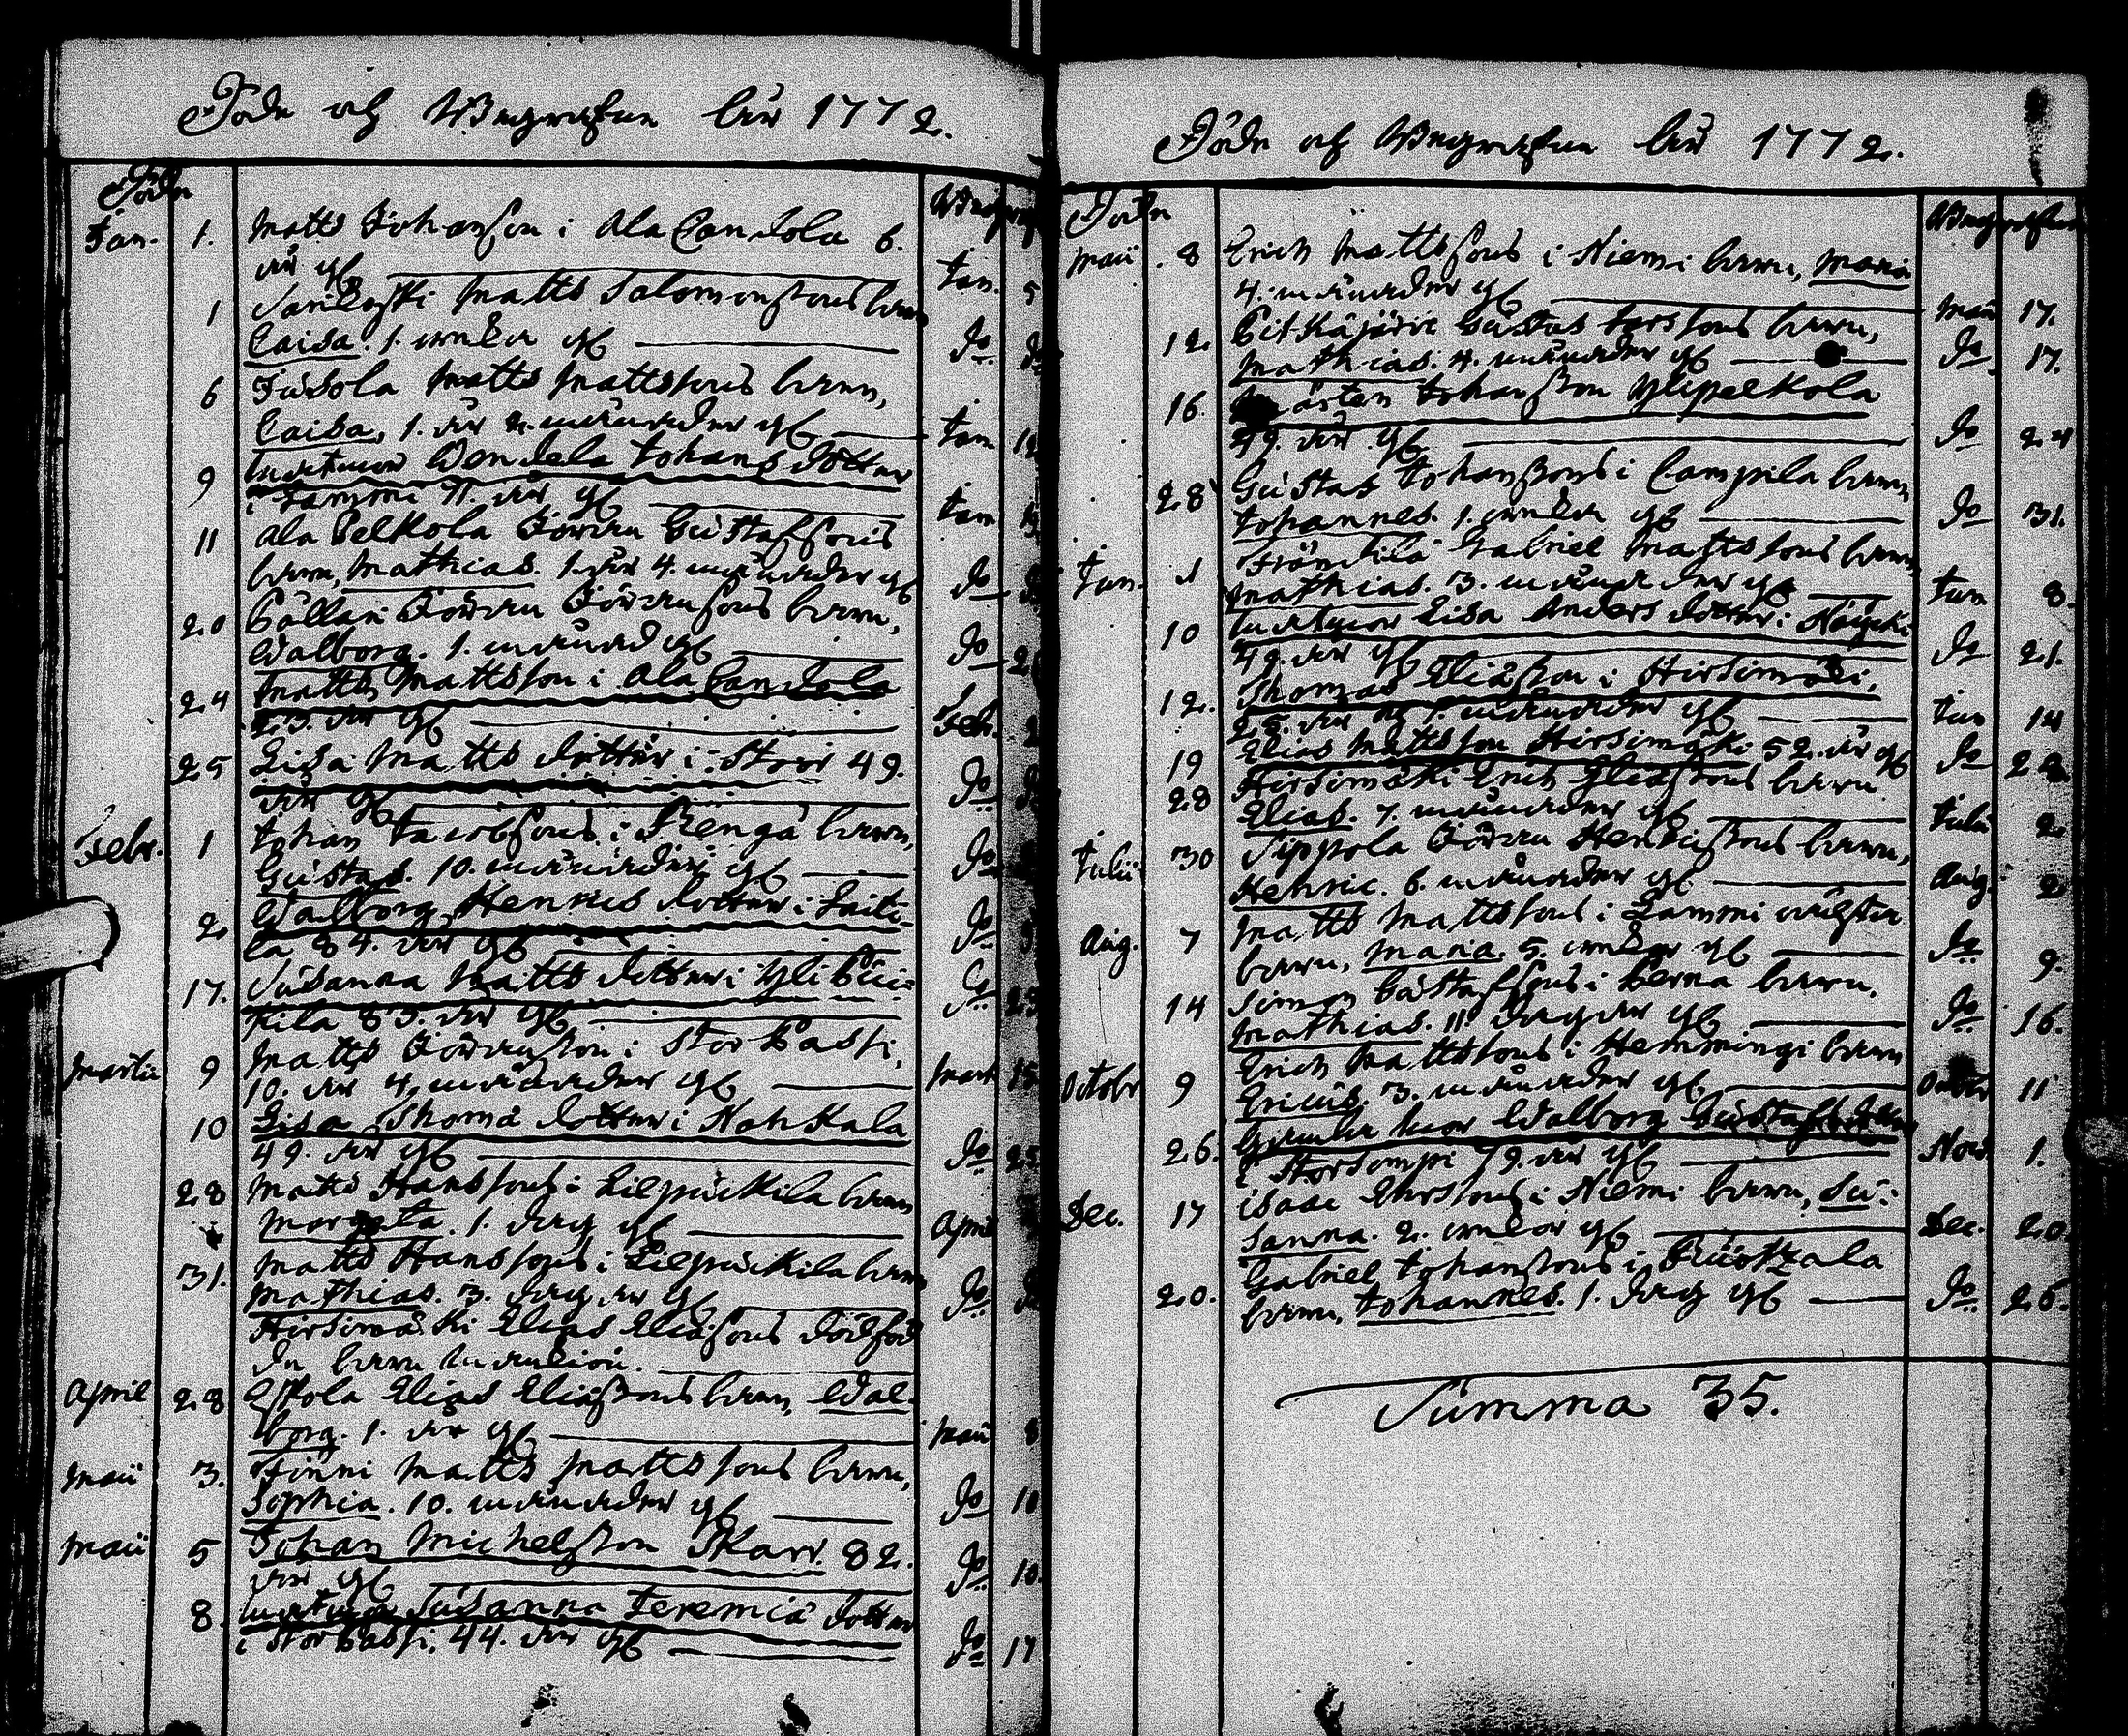 Döde och Begrafne åhr 1772.
Döde
Jan. 1. Matts Johansson i Ala Candola 6.
åhr gl. Jan. 5
1 Matts Salomonssons barn
Caisa. 1. weka gl. Do
6 Jusola Matts Mattssons barn,
Caisa, 1. åhr 2. månader gl. Jan 12
9 Wendela Johans dotter
i Tammi 71. åhr gl. Jan
11 Ala Pelkola Jöran Gustafssons
barn, Mathias. 1. åhr 4. månader gl. Do
20 Pällari Jöran Jöranssons barn,
Walborg. 1. månad gl. Do
24 Matts Mattsson i Ala Candola
23. åhr gl. Feb. 2
25 Lisa Matts dotter i Storr 49.
åhr gl. Do
Febr. 1 Johan Jacobssons i Renga barn,
Gustaf. 10. månader gl. Do
2. Walborg Henrics dotter i Laitu-
la 84. åhr gl. Do
17. Susanna Matts dotter i Yli Pui-
kila 83. åhr gl. Do 23
Martii 9 Matts Jöransson i Stor Passi,
10. åhr 4. månader gl. Mart 15
10 Lisa Thoma dotter i Nohkala
49. åhr gl. Do 25
28 Matts Hanssons i Lilpuikila barn
Margeta. 1. dag gl. April
31. Matts Hanssons i Lilpuikila barn
Mathias. 3. dagar gl. Do
Hirsimäki Elias Eliassons dödföd
da barn
April 28 Eskola Elias Eliassons barn, Wal-
borg. 1. åhr gl. Maii 8
Maii 3. Finni Matts Mattssons barn,
Sophia. 10. månader gl. Do 10
Maii 5 Johan Michelsson Skarr. 82.
åhr gl. Do 10.
8. Susanna Jeremiä dotter
i Stor Passi, 44. åhr gl. Do 17
Döde och Begrafne åhr 1772.
Döde Begrafne
Maii 8 Erich Mattssons i Niemi barn, Maria
4. månader gl. Maii 17.
12. Pitkäjärvi Gustaf Larssons barn,
Mathias. 4. månader gl. Do 17.
16. Mårten Johansson Ylipelkola
49. åhr gl. Do 24
28 Gustaf Johanssons i Campila barn
Johannes. 1. weka gl. Do 31.
Jun. 1 Fräntilä Gabriel Mattssons barn,
Mathias. 3. månader gl. Jun 8.
10 Lisa Anders dotter i
49. åhr gl. Do 21.
12. Thomas Eliasson i Hirsimäki,
25. åhr och 1. månader gl. Jun 14
19 Elias Mattsson Hirsimäki 52. åhr gl. Do 28
28 Hirsimäki Erich Eliassons barn
Elias. 7. månader gl. Julii 2.
Julii 30 Sippola Jöran Henrikssons barn,
Henric. 6. månader gl. Aug. 2
Aug. 7 Matts Mattssons i Lammi
barn, Maria. 5. wekor gl. Do 9.
14 Simon Gustafssons i Perna barn,
Mathias. 11. dagar gl. Do 16.
Octobr 9 Erich Mattssons i Hemmingi barn
Ericus. 3. månader gl. Octobr 11
26. Gamla hwor Walborg Gustafs dotter
i Storsompi 79. åhr gl. Nov. 1.
Dec. 17 Isaac Ehrssons i Niemi barn, Su-
sanna. 2. wekor gl. Dec. 20
20. Gabriel Johanssons i Ruotzala
barn, Johannes. 1. dag gl. Do 26.
Summa 35.